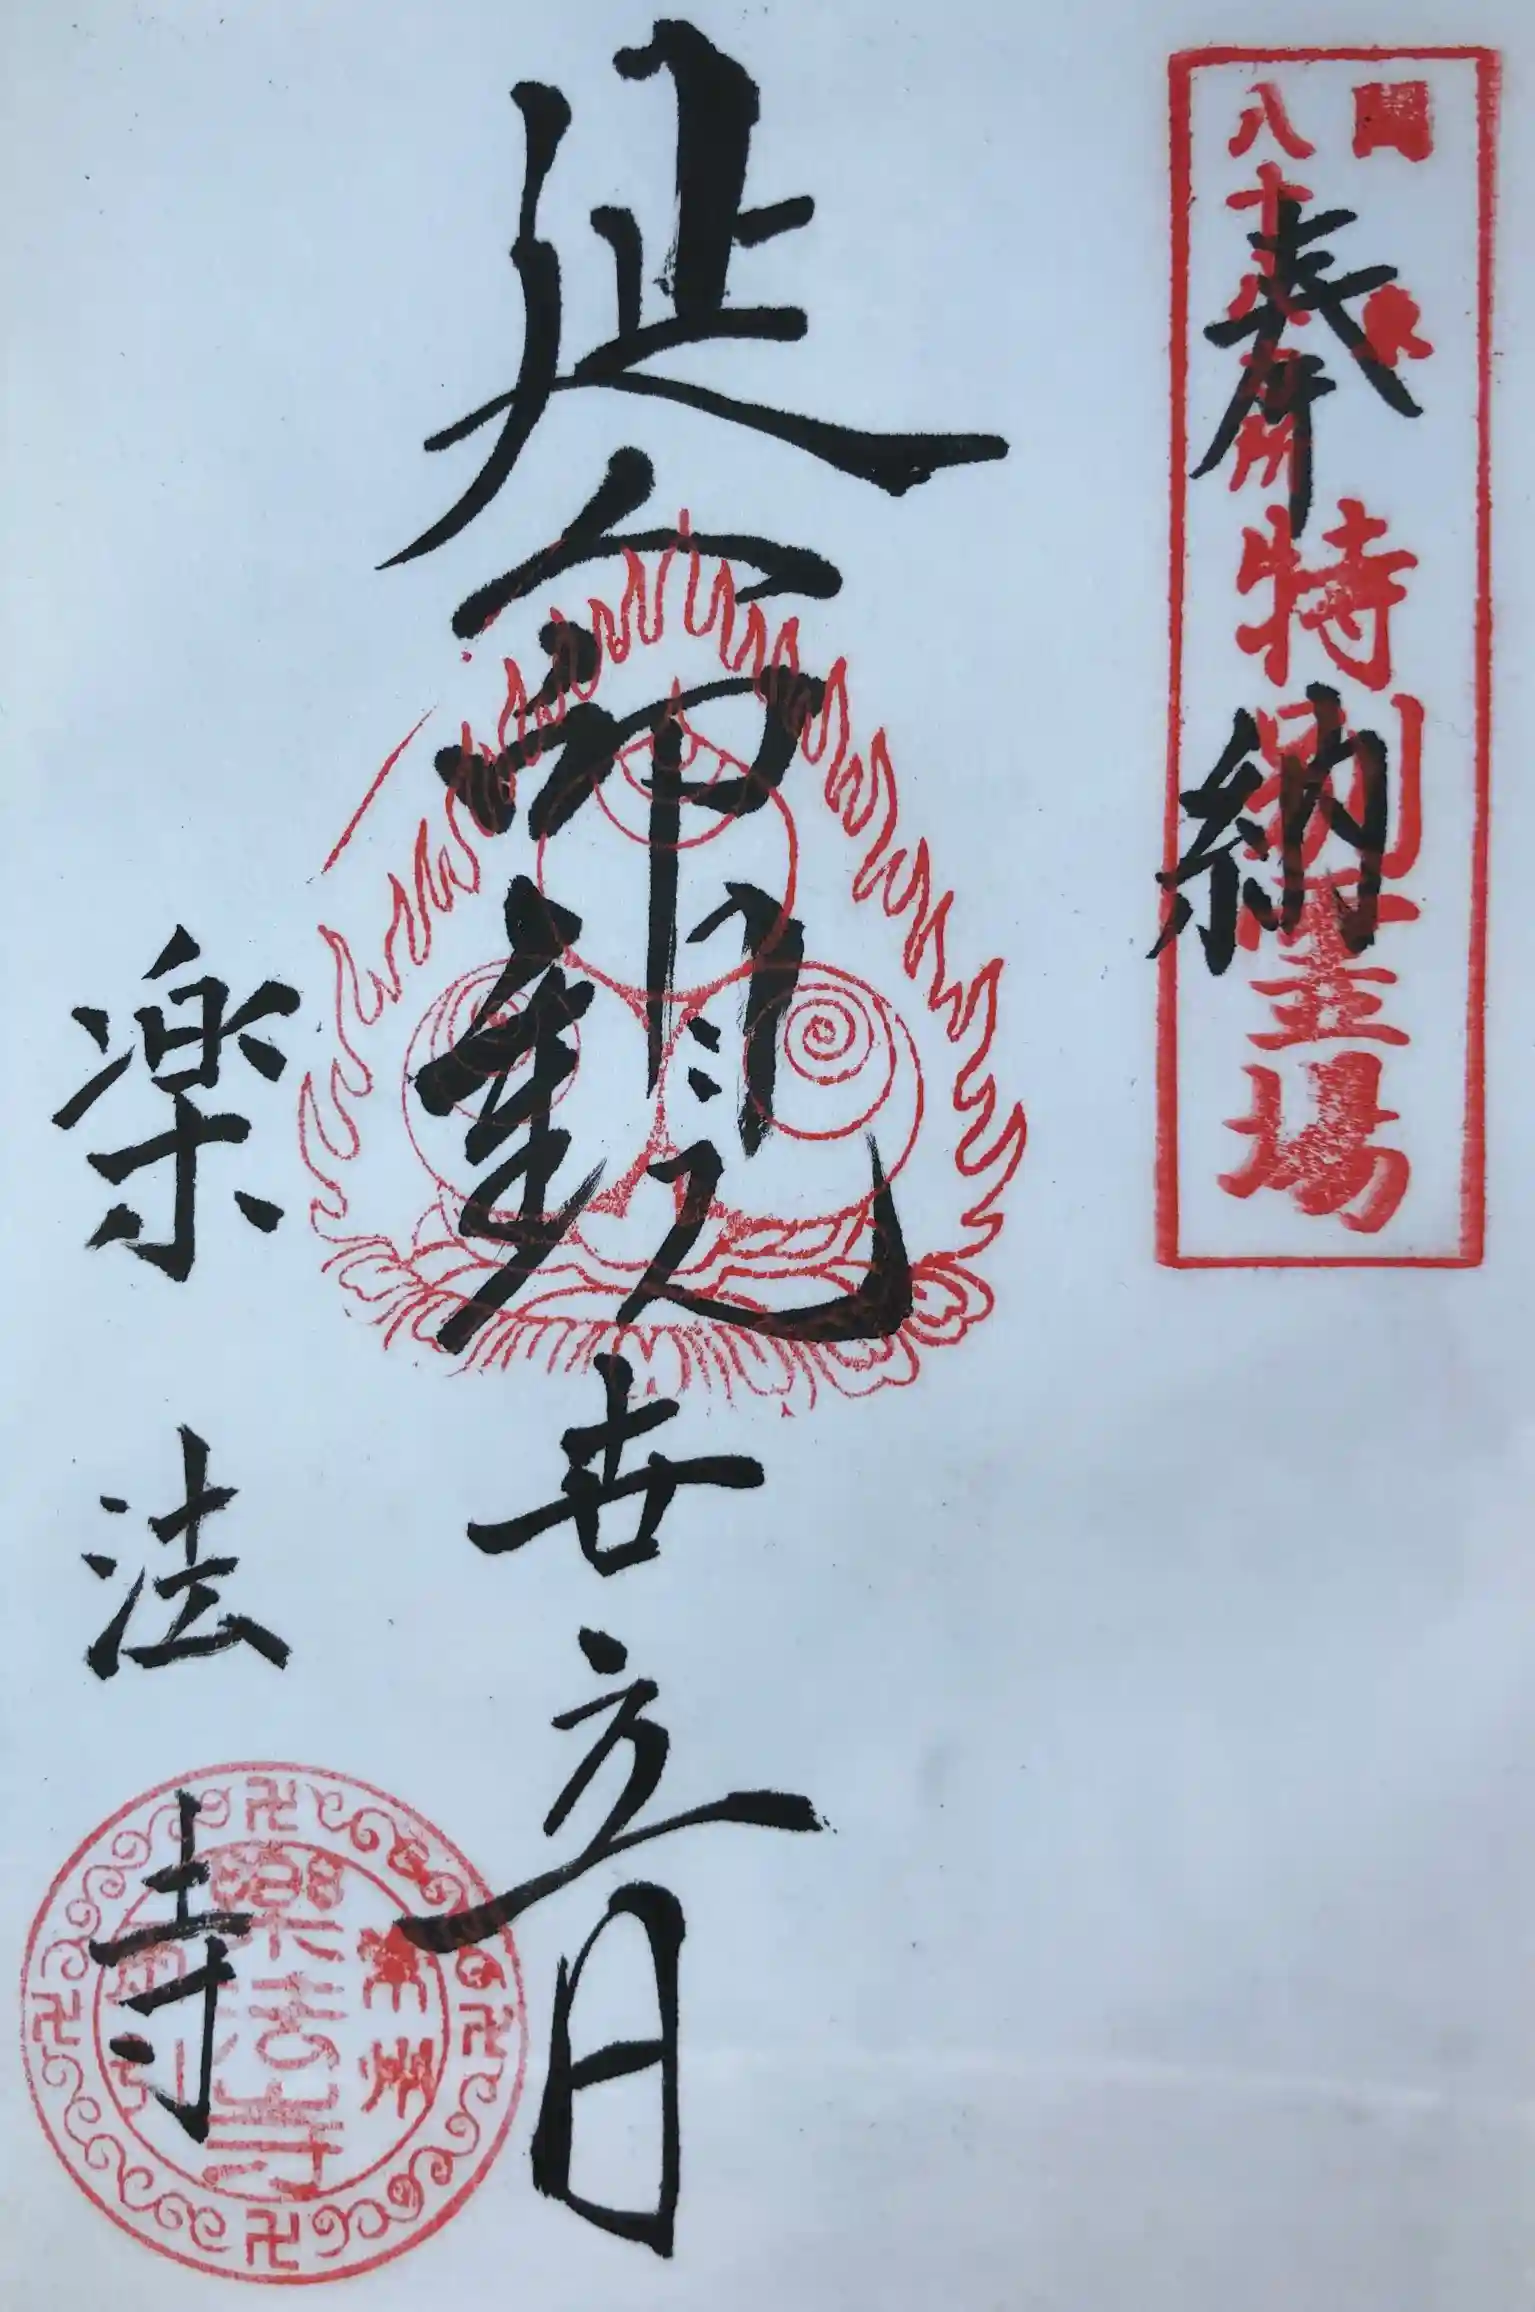 奉納
関東
八十八ヵ所
特別霊場
延命観世音
楽法寺
常州
樂法寺